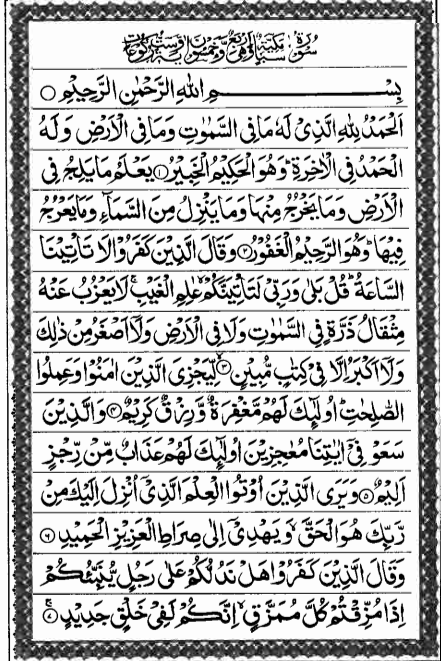 سُوْرَةُ سَبَا مَكِّيَّةٌ وَّهِيَ اَرْبَعٌ وَّخَمْسُوْنَ اٰيَةً وَّسِتُّ رُكُوْعَاتٍ
بِسْمِ اللهِ الرَّحْمٰنِ الرَّحِيْمِ ○
اَلْحَمْدُ لِلّٰهِ الَّذِيْ لَهٗ مَا فِي السَّمٰوٰتِ وَمَا فِي الْاَرْضِ وَلَهُ
الْحَمْدُ فِي الْاٰخِرَةِ ؕ وَهُوَ الْحَكِيْمُ الْخَبِيْرُ ۝۱ يَعْلَمُ مَا يَلِجُ فِي
الْاَرْضِ وَمَا يَخْرُجُ مِنْهَا وَمَا يَنْزِلُ مِنَ السَّمَآءِ وَمَا يَعْرُجُ
فِيْهَا ؕ وَهُوَ الرَّحِيْمُ الْغَفُوْرُ ۝۲ وَقَالَ الَّذِيْنَ كَفَرُوْا لَا تَاْتِيْنَا
السَّاعَةُ ؕ قُلْ بَلٰى وَرَبِّيْ لَتَاْتِيَنَّكُمْ ۙ عٰلِمِ الْغَيْبِ ۚ لَا يَعْزُبُ عَنْهُ
مِثْقَالُ ذَرَّةٍ فِي السَّمٰوٰتِ وَلَا فِي الْاَرْضِ وَلَاۤ اَصْغَرُ مِنْ ذٰلِكَ
وَلَاۤ اَكْبَرُ اِلَّا فِيْ كِتٰبٍ مُّبِيْنٍ ۝۳ لِّيَجْزِيَ الَّذِيْنَ اٰمَنُوْا وَعَمِلُوا
الصّٰلِحٰتِ ؕ اُولٰٓئِكَ لَهُمْ مَّغْفِرَةٌ وَّرِزْقٌ كَرِيْمٌ ۝۴ وَالَّذِيْنَ
سَعَوْ فِيْۤ اٰيٰتِنَا مُعٰجِزِيْنَ اُولٰٓئِكَ لَهُمْ عَذَابٌ مِّنْ رِّجْزٍ
اَلِيْمٌ ۝۵ وَيَرَى الَّذِيْنَ اُوْتُوا الْعِلْمَ الَّذِيْۤ اُنْزِلَ اِلَيْكَ مِنْ
رَّبِّكَ هُوَ الْحَقَّ ۙ وَيَهْدِيْۤ اِلٰى صِرَاطِ الْعَزِيْزِ الْحَمِيْدِ ۝۶
وَقَالَ الَّذِيْنَ كَفَرُوْا هَلْ نَدُلُّكُمْ عَلٰى رَجُلٍ يُّنَبِّئُكُمْ
اِذَا مُزِّقْتُمْ كُلَّ مُمَزَّقٍ ۙ اِنَّكُمْ لَفِيْ خَلْقٍ جَدِيْدٍ ۝۷